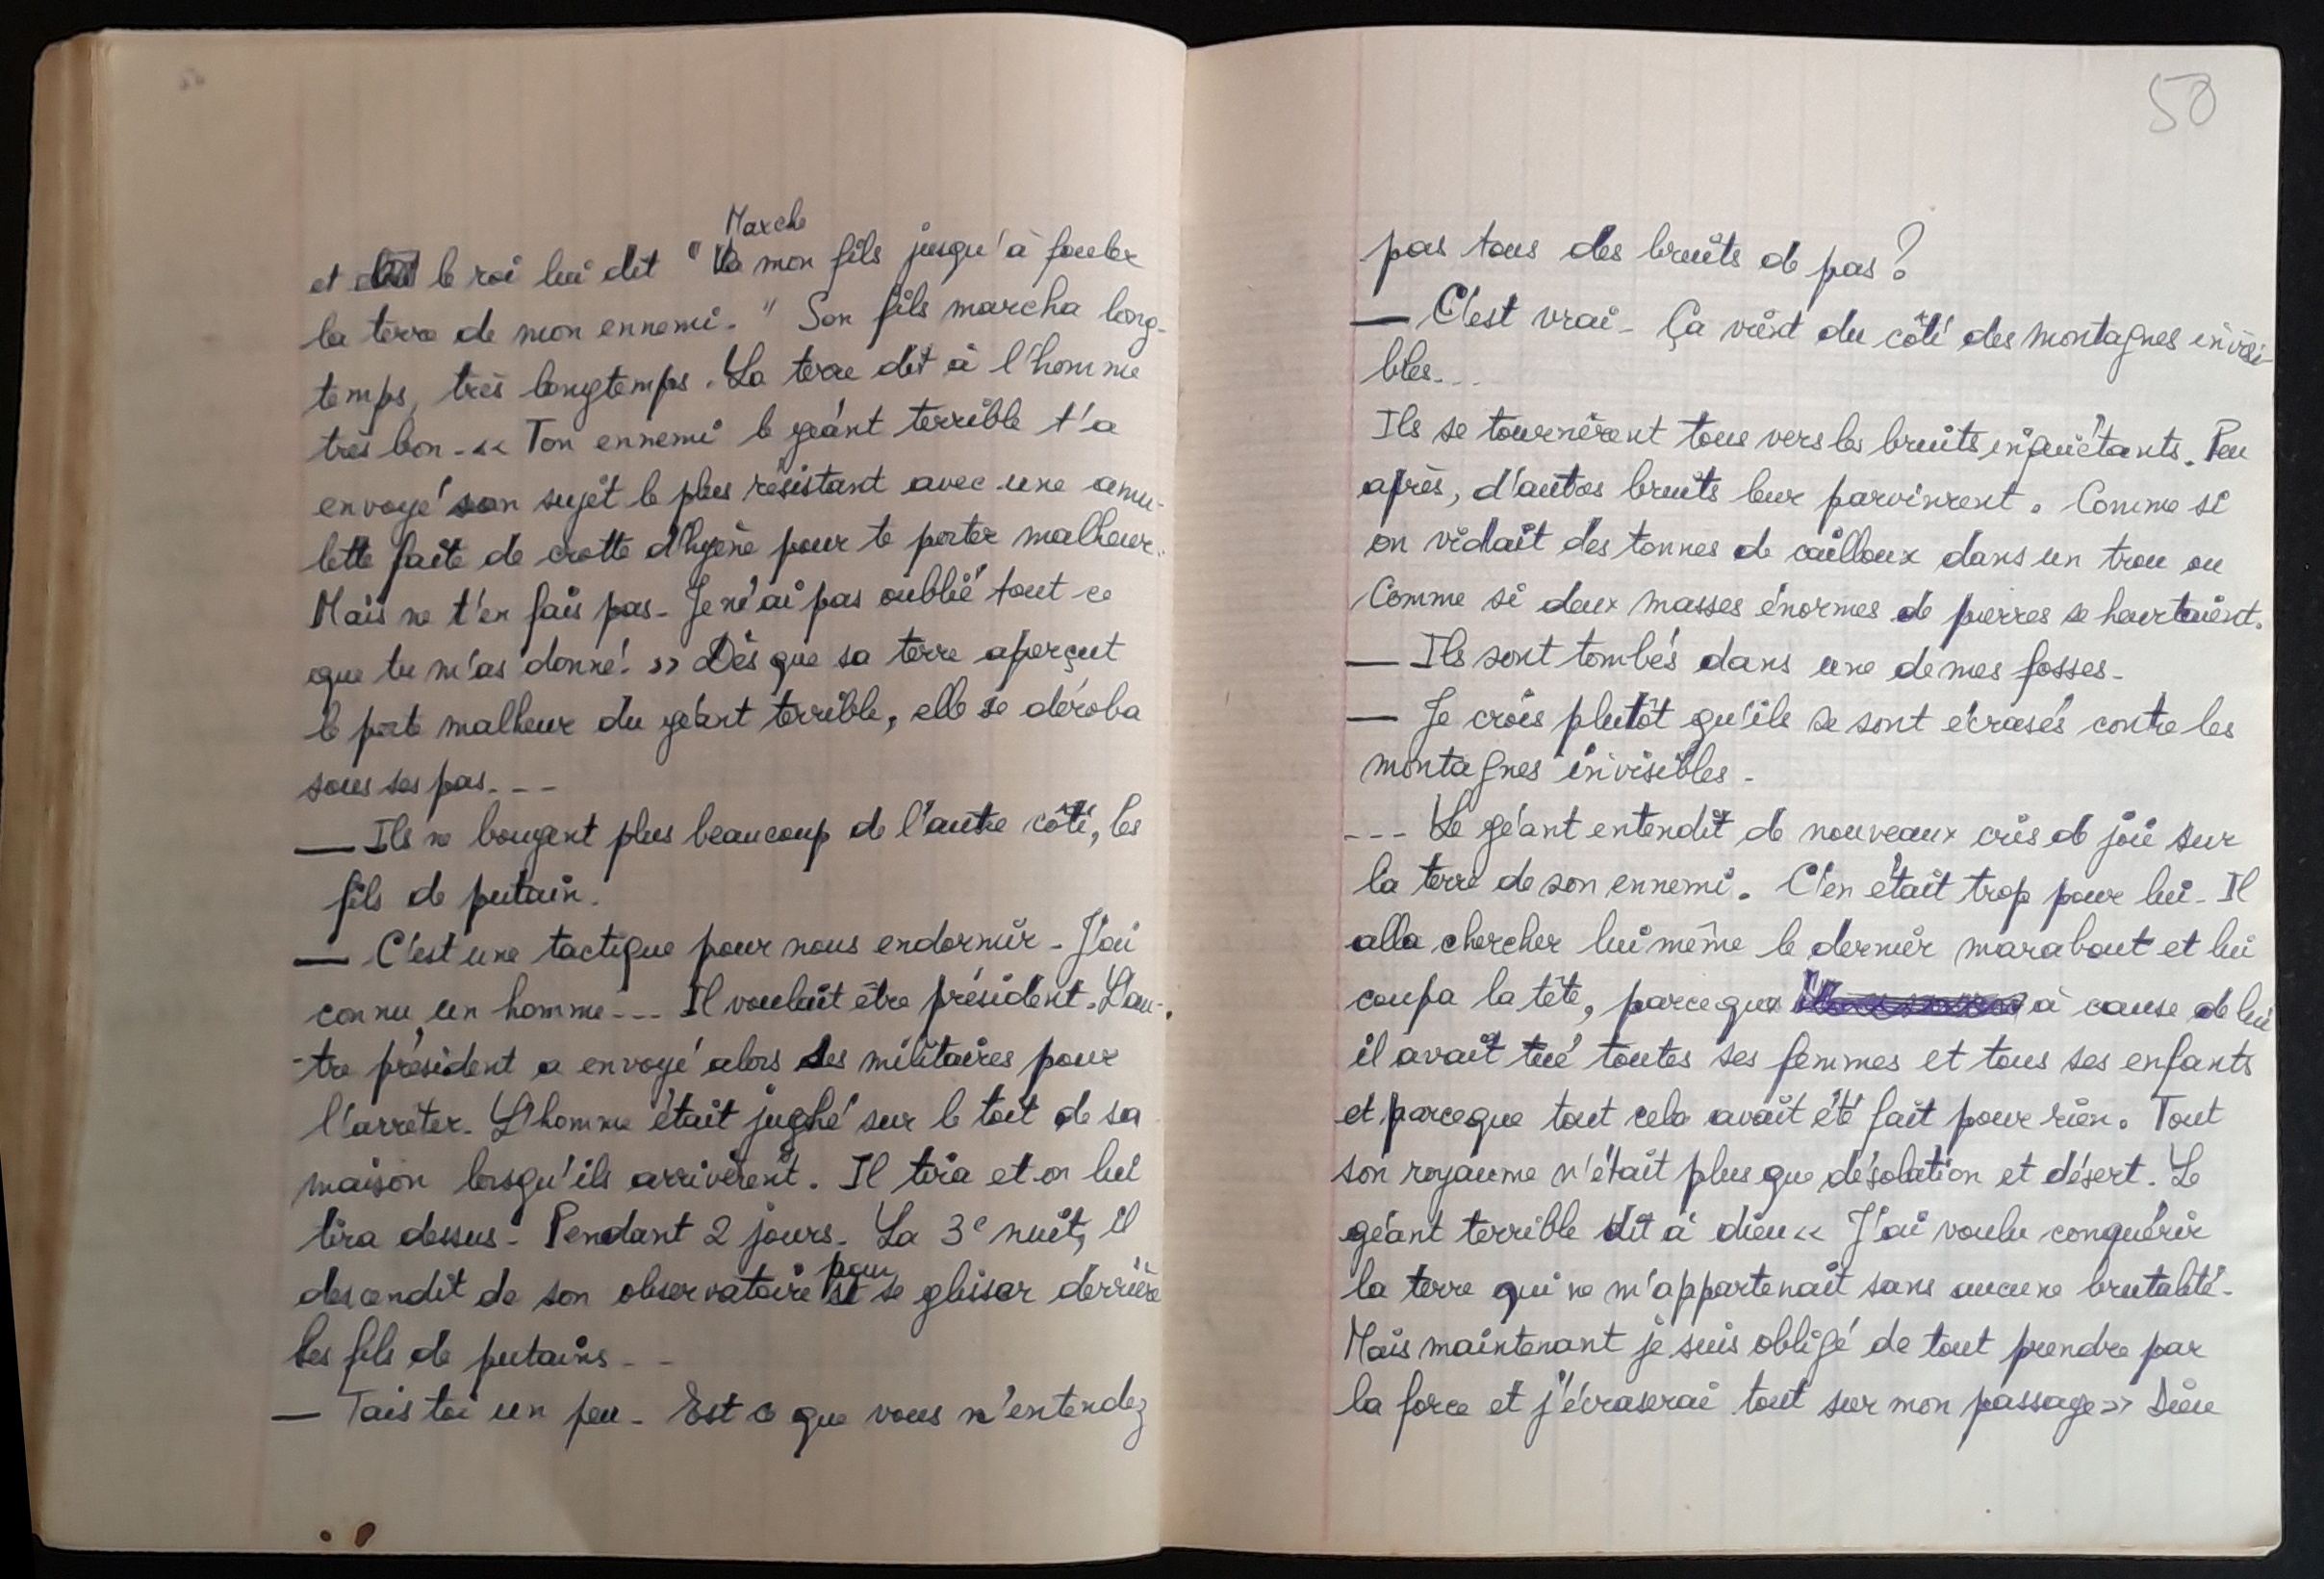 Marche
et le roi lui dit " Va mon fils jusqu'à fouler
la terre de mon ennemi. " Son fils marcha long-
temps, très longtemps. La terre dit à l'homme
très bon - « Ton ennemi le géant terrible t'a
envoyé son sujet le plus résistant avec une amu-
lette faite de crotte d'hyène pour te porter malheur.
Mais ne t'en fais pas - Je n'ai pas oublié tout ce
que tu m'as donné. » Dès que sa terre aperçut
le porte malheur du géant terrible, elle se déroba
sous ses pas. - -
— Ils ne bougent plus beaucoup de l'autre côté, les
fils de putain.
— C'est une tactique pour nous endormir - J'ai
connu un homme - - - Il voulait être président. L'au-
-tre président a envoyé alors des militaires pour
l'arrêter. L'homme était jughé sur le toit de sa
maison lorsqu'ils arrivèrent. Il tira et on lui
tira dessus - Pendant 2 jours - La 3e nuit, il
pour
descendit de son observatoire et se glisser derrière
les fils de putains - -
— Tais toi un peu - Est ce que vous n'entendez
50
pas tous des bruits de pas ?
— C'est vrai - Ça vient du côté des montagnes invisi-
bles. . .
Ils se tournèrent tous vers les bruits inquiétants. Peu
après, d'autres bruits leur parvinrent. Comme si
on vidait des tonnes de cailloux dans un trou ou
Comme si deux masses énormes de pierres se heurtaient.
— Ils sont tombés dans une de mes fosses -
— Je crois plutôt qu'ils se sont écrasés contre les
montagnes invisibles -
- - - Le géant entendit de nouveaux cris de joie sur
la terre de son ennemi. C'en était trop pour lui - Il
alla chercher lui même le dernier marabout et lui
coupa la tête, parceque à cause de lui
il avait tué toutes ses femmes et tous ses enfants
et parceque tout cela avait été fait pour rien. Tout
son royaume n'était plus que désolation et désert. Le
géant terrible dit à dieu « J'ai voulu conquérir
la terre qui ne m'appartenait sans aucune brutalité -
Mais maintenant je suis obligé de tout prendre par
la force et j'écraserai tout sur mon passage » Dieu